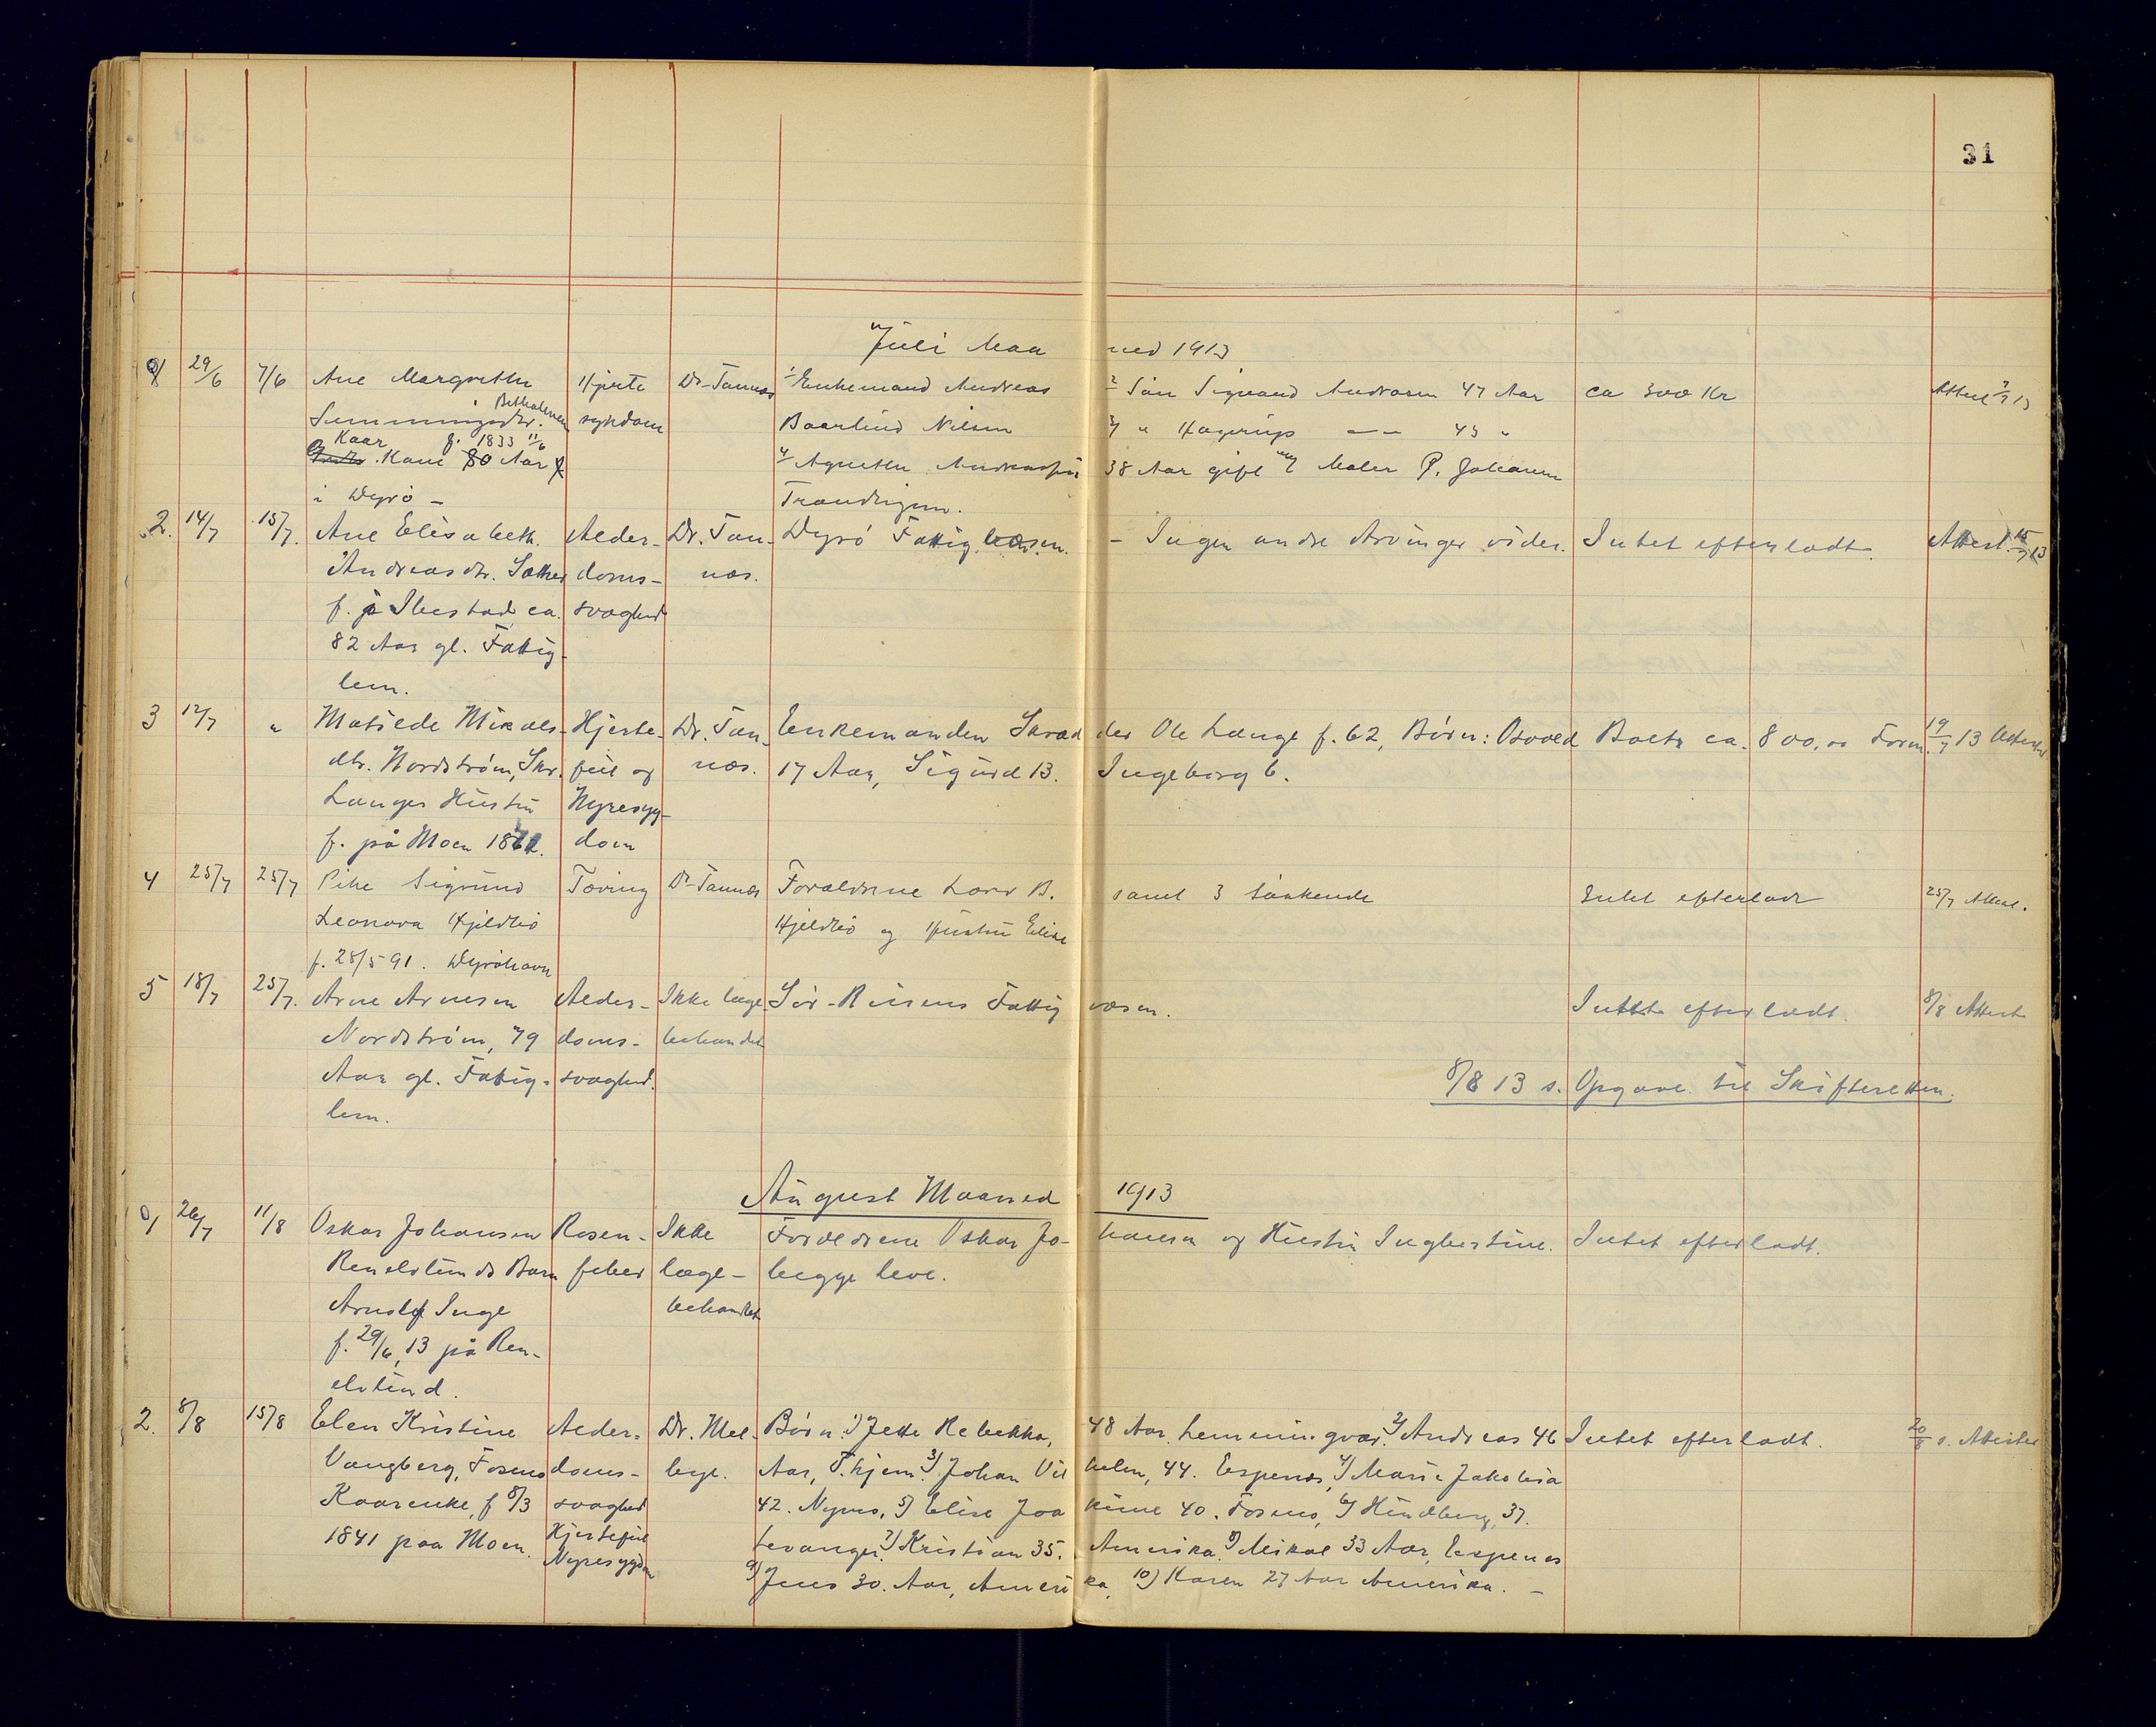 31
Juli Maaned 1913
29/6 7/6 Ane Margrethe Hjerte Dr. Tannæs 1 Enkemand Andreas 2 Søn Sigvard Andreasen 47 Aar ca 300 Kr Attest 7/7 13
syndom Baarlund Nilsen 3 " Hagerup — — 43 "
Kaar f. 1833 11/6
Kone 80 Aar 4 Agnethe 38 Aar gift m/ Maler P. Johansen
i Dyrö — Trondhjem.
2. 14/7 15/7. Ane Elisabeth Alder- Dr. Tan- Dyrö Fattigvæsen. - Ingen andre Arvinger vides. Intet efterladt. Attest. 15/7 13
Andreasdtr. doms- næs.
f. på Ibestad ca. svaghed
82 Aar gl. Fattig-
lem.
3 12/7 " Matilde Mikals- Hjerte- Dr. Tan- Enkemanden Skrædder Ole Lange f. 62, Börn: Osvald Boets ca. 800,00 Form. 19/7 13 Attester
dtr. Nordström, Skr. feil og næs. 17 Aar, Sigurd 13. Ingeborg 6.
Langes Hustru Nyresyg-
f. på Moen dom
4 25/7 25/7 Pike Sigrund Tæring Dr. Tannæs Forældrene Lars B. samt 3 Söskende Intet efterladt 25/7 Attest.
Leonora Hjeldbö Hjeldbö og Hustru Elise
f. 28/5 91. Dyröhavn
5 18/7 25/7. Arne Arnesen Alder- Ikke læge- Sör-Reisens Fattigvæsen. Intet efterladt. 8/8 Attest
Nordström, 79 doms- behandlet
Aar gl. Fattig- svaghed.
lem.
8/8 13 s. Opgave til Skifteretten.
August Maaned 1913
1 26/7 11/8 Oskar Johansen Rosen- Ikke Forældrene Oskar Johansen og Hustru Ingbertine. Intet efterladt.
Renelvlunds Barn feber læge- begge leve.
Arnolf Inge behandlet
f. 29/6, 13 på Ren-
elvlund.
2. 8/8 15/8 Elen Kristine Alder- Dr. Mel- Börn: 1) Jette Rebekka, 48 Aar. Lemmingvær. 2) Andreas 46 Intet efterladt. 20/8 s. Attester
Vangberg, Fosnes doms- bye. Aar, T.hjem. 3) Johan Vilhelm, 44. Espenes, 4) Marie Jakobia
Kaarenke, f 8/3 svaghed 42. Nymo, 5) Elise Joakime 40. Fosnes, 6) Hindberg, 37.
1841 paa Moen. Hjertefeil Levanger. 7) Kristian 35. Amerika. 8) Mikal 33 Aar, Espenes
Nyresygdom 9) Jens 30. Aar, Amerika, 10) Karen 27 Aar Amerika. —